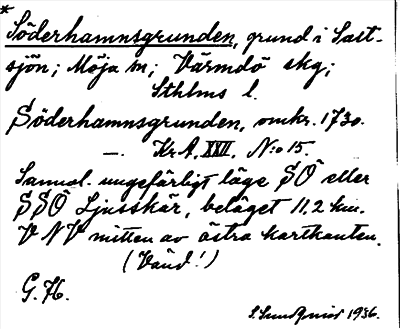 * Söderhamnsgrunden, grund i Salt-
sjön; Möja sn; Värmdö skg;
Sthlms l.
Söderhamnsgrunden, omkr. 1730.
—. Kr.A. XXII. N:o 15.
Sannol. ungefärligt läge SÖ eller
SSÖ Ljusskär, beläget 11,2 km.
VNV mitten av östra kartkanten.
(Vänd!)
G.H.
1936.